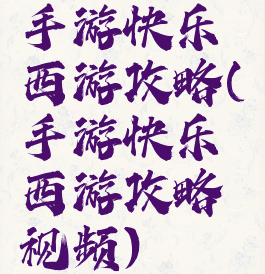 手游快乐
西游攻略(
手游快乐
西游攻略
视频)